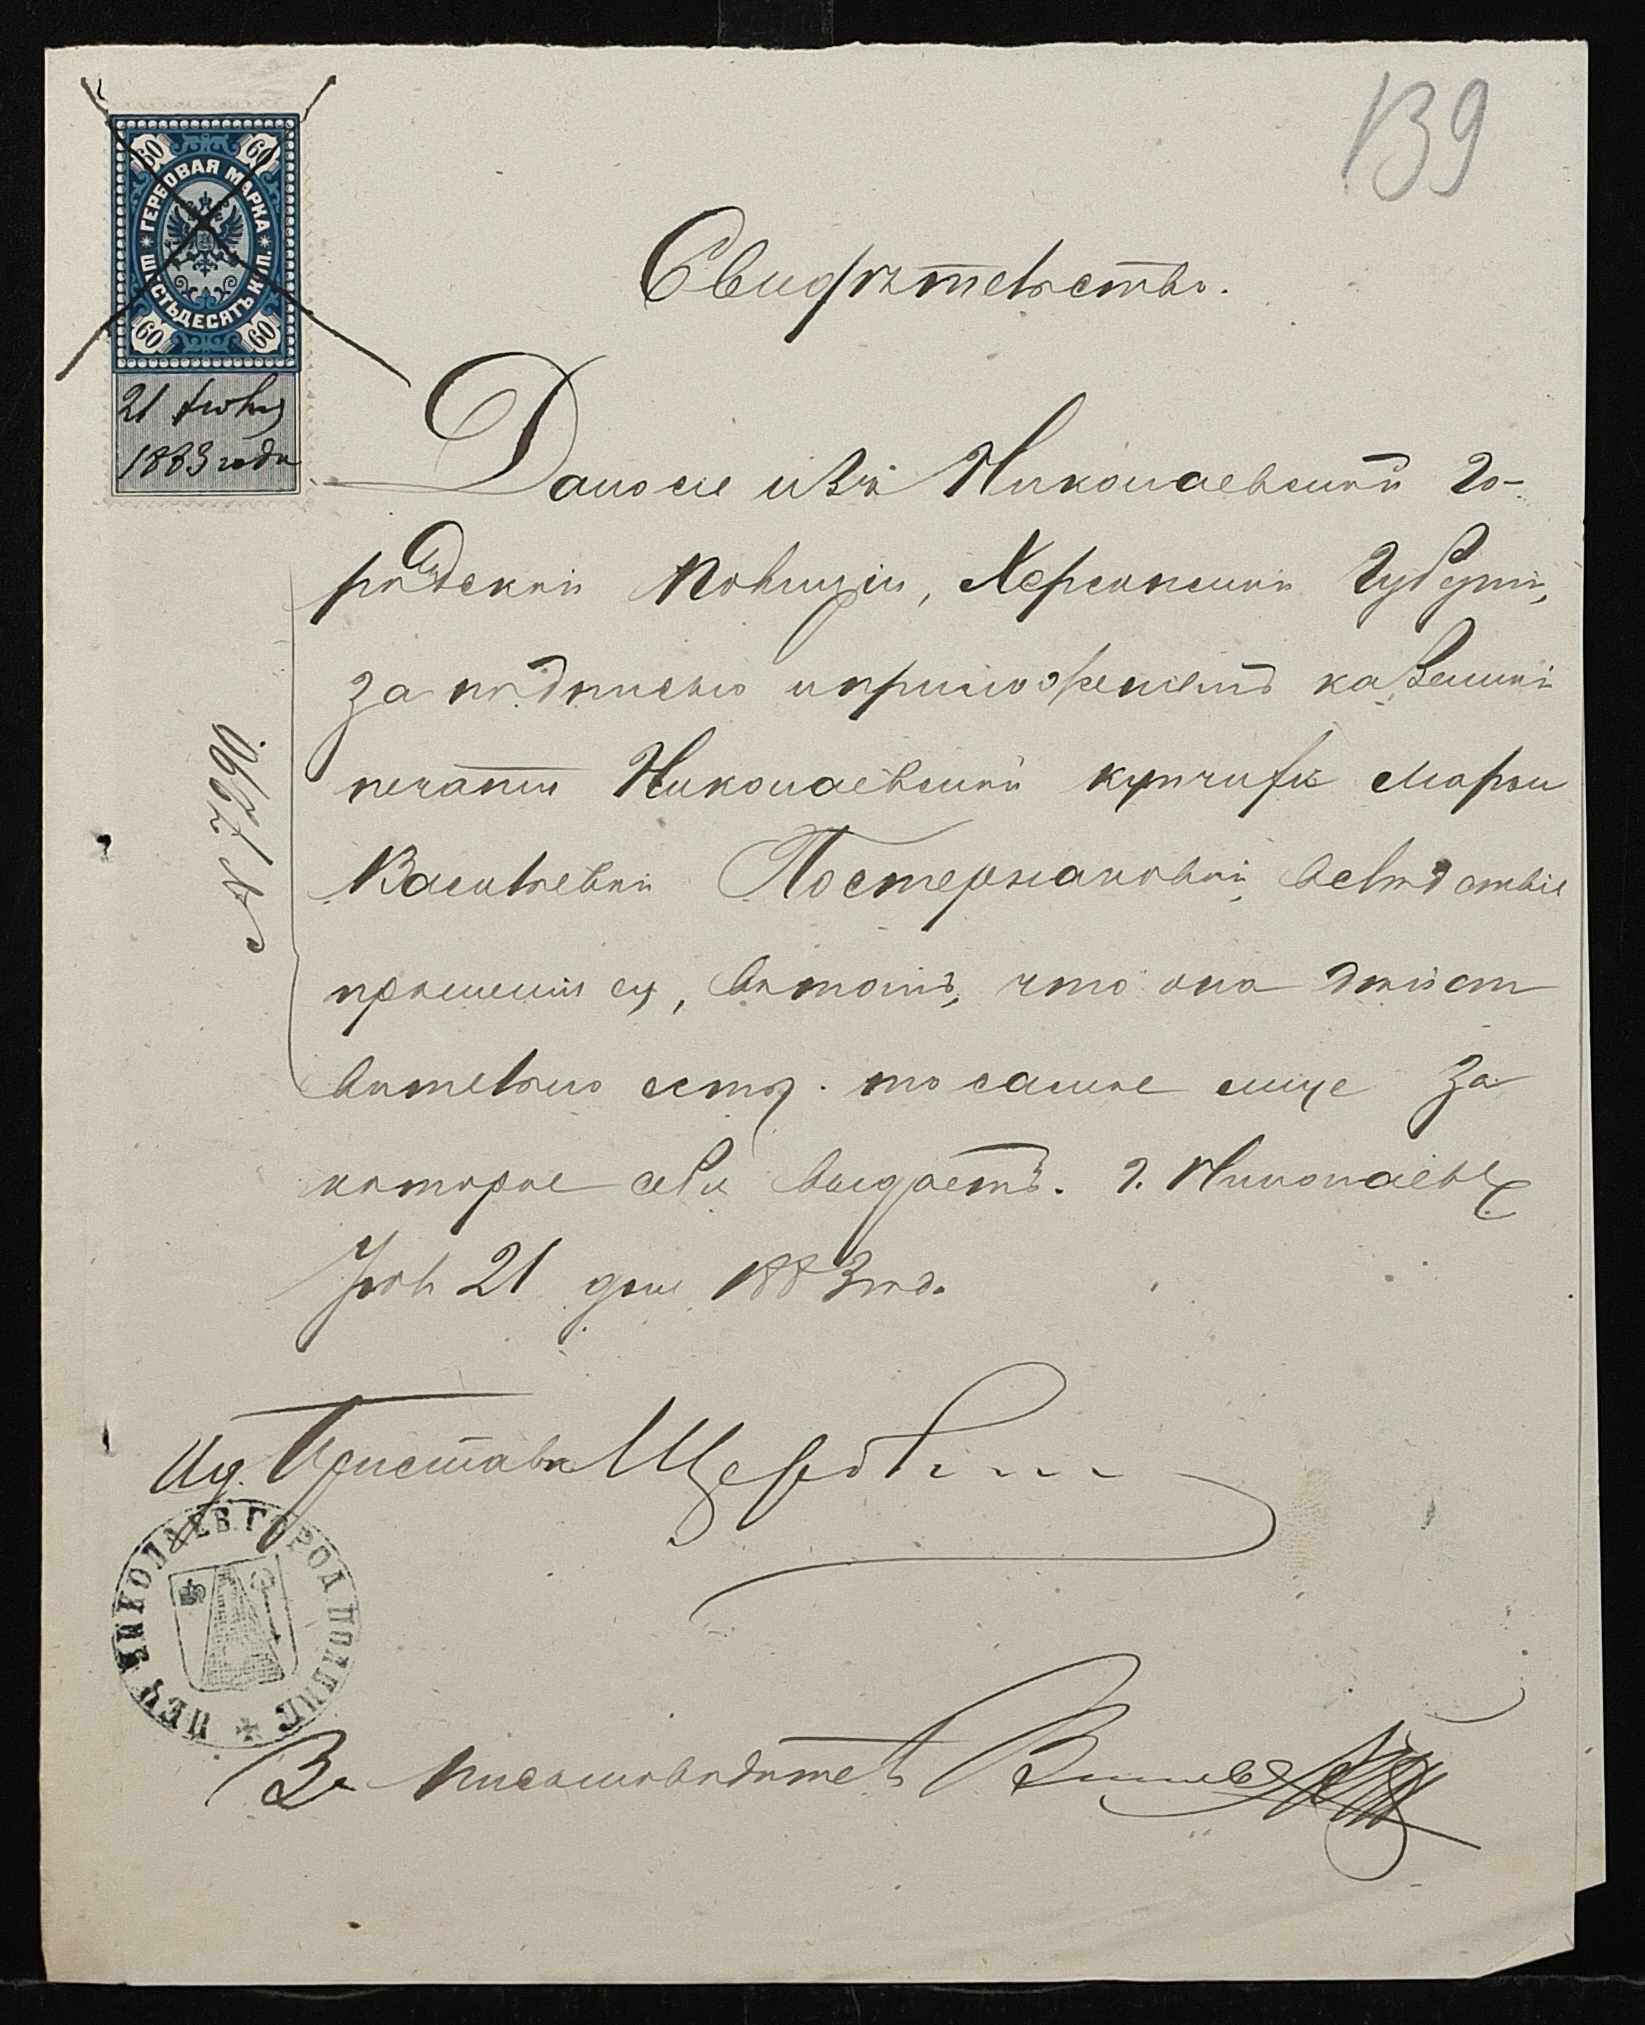 139
60 60
ГЕРБОВАЯ МАРКА
ШЕСТЬДЕСЯТЪ КОП.
60 60
21 Июня
1883 года
Свидѣтельство.
Дано сие изъ Николаевской Го-
родской Полиціи, Херсонской Губерніи,
за подписью и приложеніемъ казенной
печати Николаевской купчихѣ Марьи
Васильевнѣ Постернаковой, вслѣдствіе
прошенія ея, въ томъ, что она дѣйст
вительно есть то самое лице за
которое себя выдаетъ. г. Николаевъ
21 дня 1883 год.
Ид. Пристава Щербин
ПЕЧ НИКОЛАЕВ. ГОРОД ПОЛИЦІ
За Письмоводителя